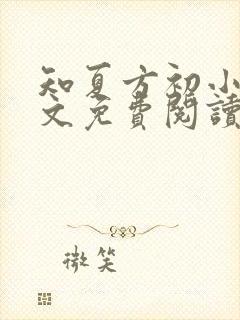 知夏方初小
文免費閱讀
微笑